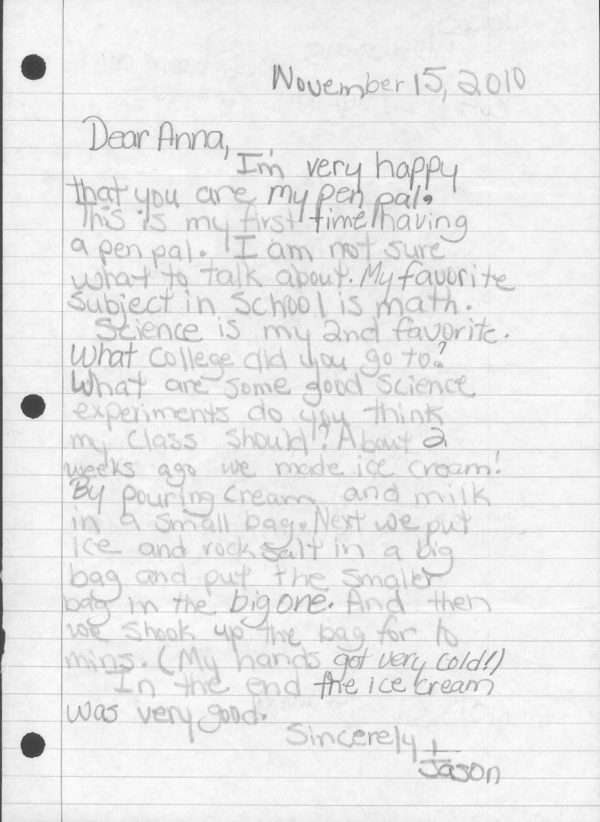 November 15, 2010
Dear Anna,
I'm very happy
that you are my pen pal.
This is my first time having
a pen pal. I am not sure
what to talk about. My favorite
subject in school is math.
Science is my 2nd favorite.
What college did you go to?
What are some good science
experiments do you think
my class should? About 2
weeks ago we made ice cream!
By pouring cream and milk
in a small bag. Next we put
ice and rock salt in a big
bag and put the smaller
bag in the big one. And then
we shook up the bag for 10
mins. (My hands got very cold!)
In the end the ice cream
was very good.
Sincerely,
Jason